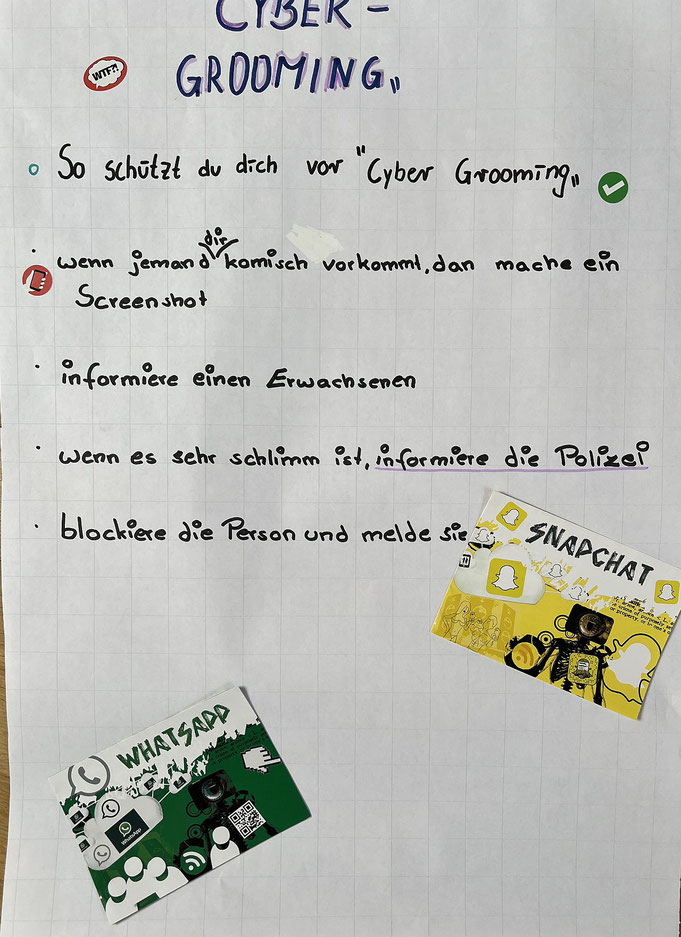 CYBER-
GROOMING„
WTF?!
So schützt du dich vor "Cyber Grooming„
wenn jemand dir komisch vorkommt, dan mache ein
Screenshot
informiere einen Erwachsenen
wenn es sehr schlimm ist, informiere die Polizei
blockiere die Person und melde sie
SNAPCHAT
WHATSAPP
WhatsApp